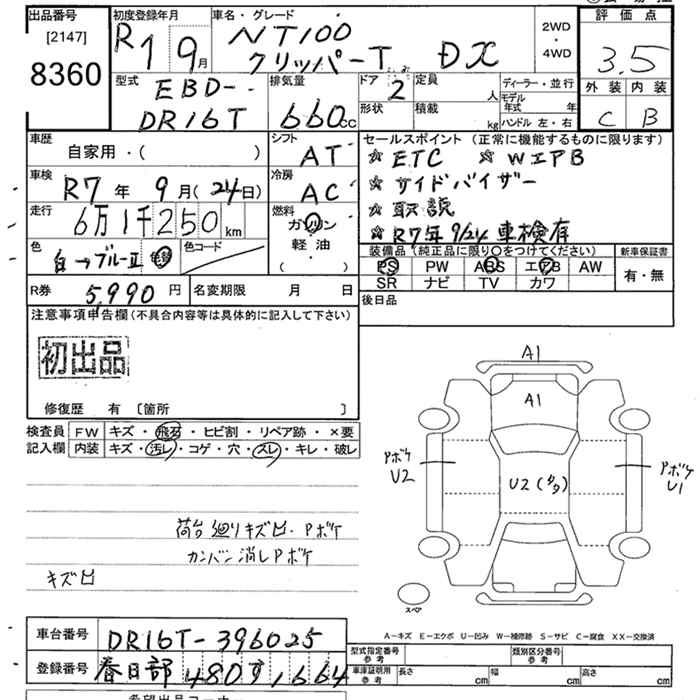 出品番号
[2147]
8360
初度登録年月
R1 9月
車名・グレード
NT100
クリッパーT DX
2WD
・
4WD
評価点
3.5
外装 内装
C B
型式
EBD-
DR16T
排気量
660cc
ドア
2
定員
人
形状
積載
kg
ディーラー・並行
モデル年式 年
ハンドル 左・右
車歴
自家用・( )
シフト
AT
車検
R7年 9月(24日)
冷房
AC
走行
6万1千250km
燃料
ガソリン
軽油
( )
色
白→ブルーII 登録
色コード
セールスポイント(正常に機能するものに限ります)
☆ETC ☆WエアB
☆サイドバイザー
☆取説
☆R7年9/24車検有
装備品(純正品に限り○をつけてください)
新車保証書
PS PW ABS エアB AW
SR ナビ TV カワ
有・無
R券
5,990円
名変期限 月 日
後日品
注意事項申告欄(不具合内容等は具体的に記入して下さい)
初出品
修復歴 有 〔箇所 〕
検査員
記入欄
FW キズ・飛石・ヒビ割・リペア跡・×要
内装 キズ・汚レ・コゲ・穴・スレ・キレ・破レ
荷台廻りキズ凹・Pボケ
カンバン消しPボケ
キズ凹
A1
A1
Pボケ
U2
U2(多数)
Pボケ
U1
スペア
A-キズ E-エクボ U-凹み W-補修跡 S-サビ C-腐食 XX-交換済
車台番号
DR16T-396025
登録番号
春日部480す1664
型式指定番号
参考
類別区分番号
参考
車庫証明用
参考
長さ cm
幅 cm
高さ cm